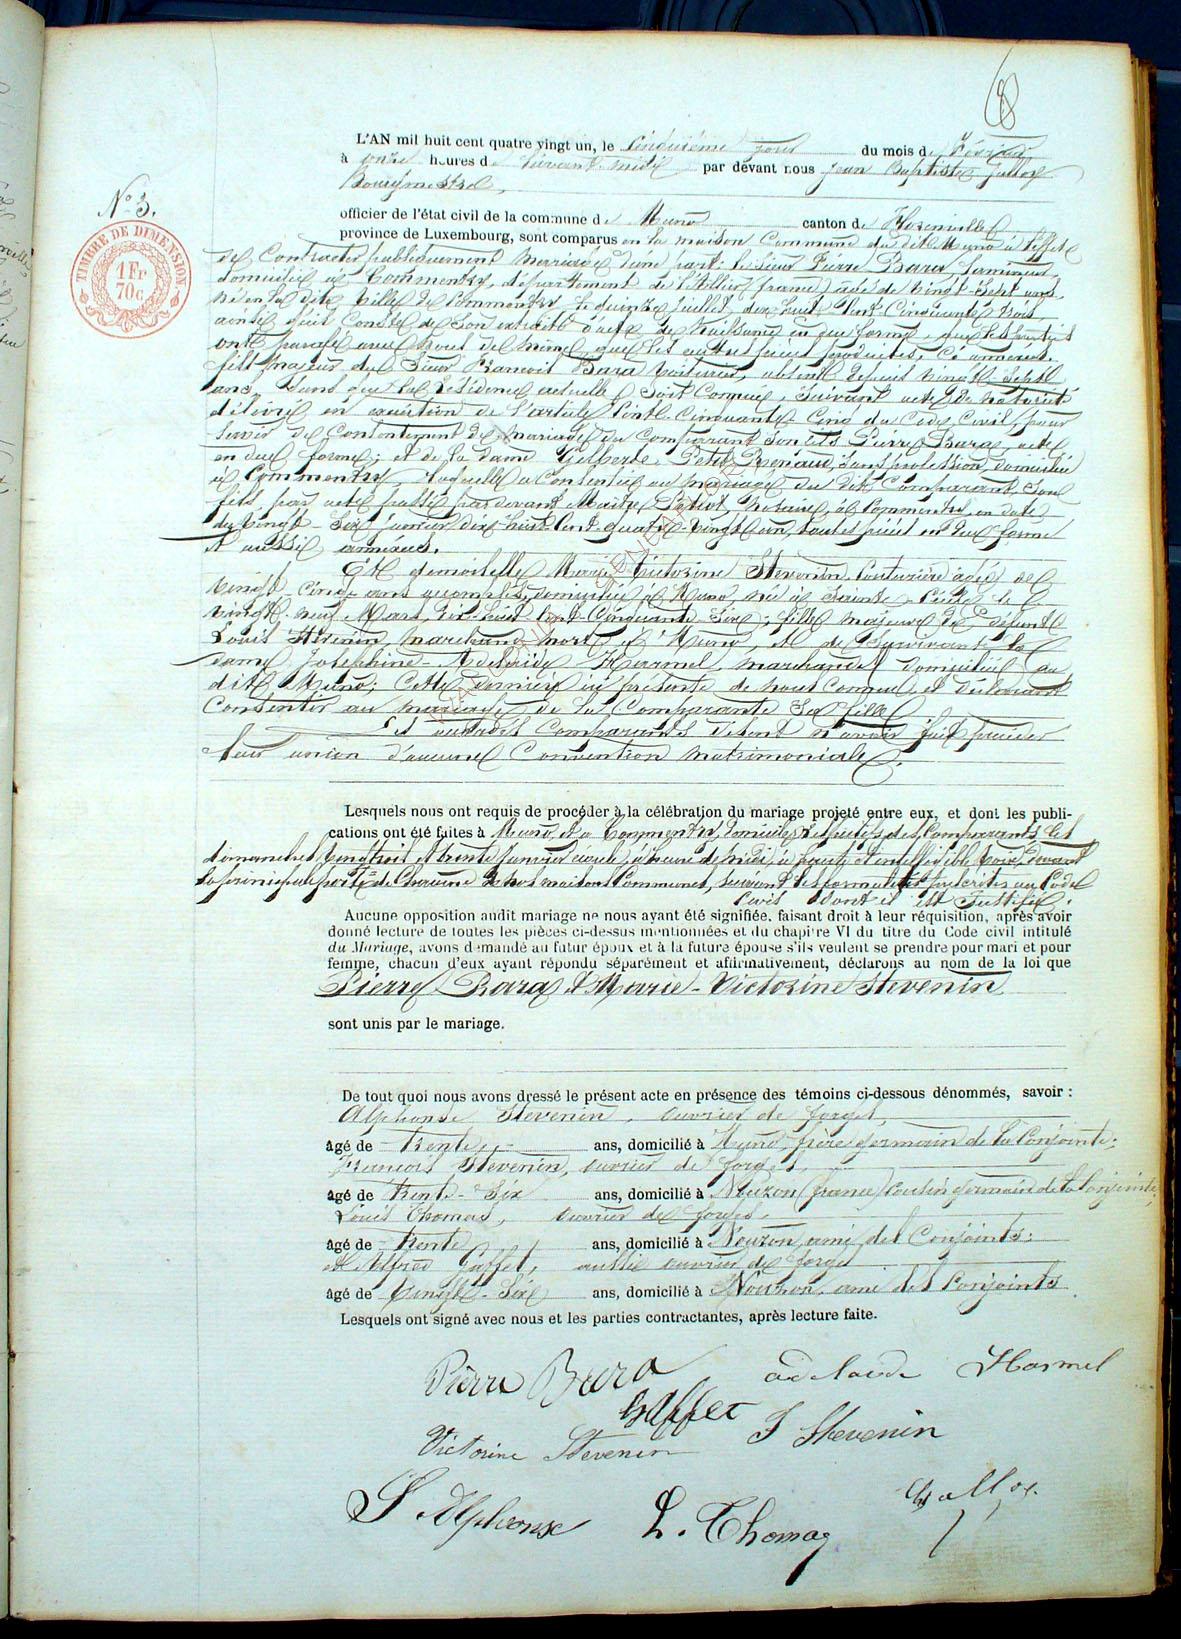 8
L'AN mil huit cent quatre vingt un, le cinquième jour du mois de Février
à onze heures de avant-midi par devant nous Jean Baptiste Galloy
Bourgmestre,
N° 3.
TIMBRE DE DIMENSION
1 Fr
70c
officier de l'état civil de la commune de Muno canton de Florenville
province de Luxembourg, sont comparus en la maison Commune du dit Muno à l'effet
de Contracter publiquement mariage d'une part le sieur Pierre Bara lamineur,
domicilié à Commentry, département de l'Allier (france) âgé de vingt-sept ans,
né en la dite ville de Commentry le quinze juillet dix huit cent cinquante trois,
ainsi qu'il conste de son extrait d'acte de naissance en due forme, que les parties
ont paraphé avec nous de même que les autres pièces produites, ci annexées.
fils majeur du Sieur Bara voiturier, absent depuis vingt-sept
ans, sans que sa résidence actuelle soit connue, suivant acte de notoriété
délivré en exécution de l'article Cent-Cinquante-Cinq du Code Civil, pour
servir de Consentement de mariage du Comparant son fils Pierre Bara acte
en due forme; et de la dame Gilberte Petit-Renaud, sans profession, domiciliée
à Commentry, laquelle a Consenti au mariage du dit Comparant, son
fils par acte passé par devant Maître notaire à Commentry en date
du vingt-six janvier dix huit cent quatre-vingt un, toutes pièces en due forme
et aussi annexées.
Et demoiselle Marie-Victorine Stevenin, Couturière âgée de
vingt-cinq ans accomplis, domiciliée à Muno née à Sainte-Cécile le
vingt-neuf Mars dix-huit Cent-Cinquante Six; fille majeure de défunt
Louis Stevenin, marchand mort à Muno, et de survivante la
dame Josephine-Adelaïde Harmel, marchande domiciliée au
dit Muno; Cette dernière ici présente de nous connue et déclarant
Consentir au mariage de la Comparante Sa fille.
Les susdits Comparants disent n'avoir fait précéder
leur union d'aucune Convention matrimoniale.
Lesquels nous ont requis de procéder à la célébration du mariage projeté entre eux, et dont les publi-
cations ont été faites à Muno et à Commentry, domiciles respectifs des Comparants les
dimanches vingt trois et trente Janvier écoulé, à l'heure de midi, à haute et intelligible voix, devant
la principale porte de Chacune de nos maisons Communes, suivant les formalités prescrites au Code
Civil dont il est justifié.
Aucune opposition audit mariage ne nous ayant été signifiée, faisant droit à leur réquisition, après avoir
donné lecture de toutes les pièces ci-dessus mentionnées et du chapitre VI du titre du Code civil intitulé
du Mariage, avons demandé au futur époux et à la future épouse s'ils veulent se prendre pour mari et pour
femme, chacun d'eux ayant répondu séparément et affirmativement, déclarons au nom de la loi que
Pierre Bara et Marie-Victorine Stevenin
sont unis par le mariage.
De tout quoi nous avons dressé le présent acte en présence des témoins ci-dessous dénommés, savoir :
Alphonse Stevenin, ouvrier de forges,
âgé de trente ans, domicilié à Muno, frère germain de la Conjointe;
François Stevenin, ouvrier de forges,
âgé de trente-Six ans, domicilié à Nouzon (france) Cousin germain de la Conjointe;
Louis Thomas, ouvrier de forges,
âgé de trente ans, domicilié à Nouzon, ami des Conjoints;
et Alfred Gaffet, aussi ouvrier de forge
âgé de vingt-Six ans, domicilié à Nouzon, ami des Conjoints.
Lesquels ont signé avec nous et les parties contractantes, après lecture faite.
Pierre Bara adelaide Harmel
Gaffet
Victorine Stevenin F Stevenin
S Alphonse L. Thomas Galloy